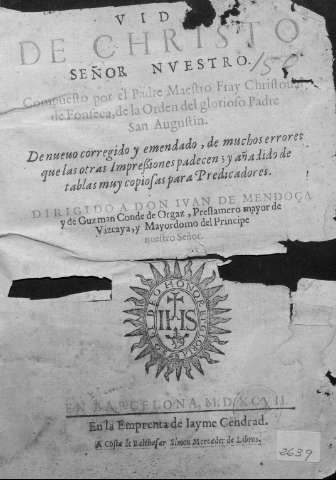 VID
DE CHRISTO
SEÑOR NVESTRO.
150
Compuesto por el Padre Maestro Fray Christoual
de Fonseca, de la Orden del glorioso Padre
San Augustin.
De nueuo corregido y emendado, de muchos errores
que las otras Impreßiones padecen; y añadido de
tablas muy copiosas para Predicadores.
DIRIGIDO A DON IVAN DE MENDOÇA
y de Guzman Conde de Orgaz, Prestamero mayor de
Vizcaya, y Mayordomo del Principe
nuestro Señor.
IHS
EN BARCELONA, M.D.XCVII
En la Emprenta de Iayme Cendrad.
A Costa de Balthasar Simon Mercader de Libros.
2639